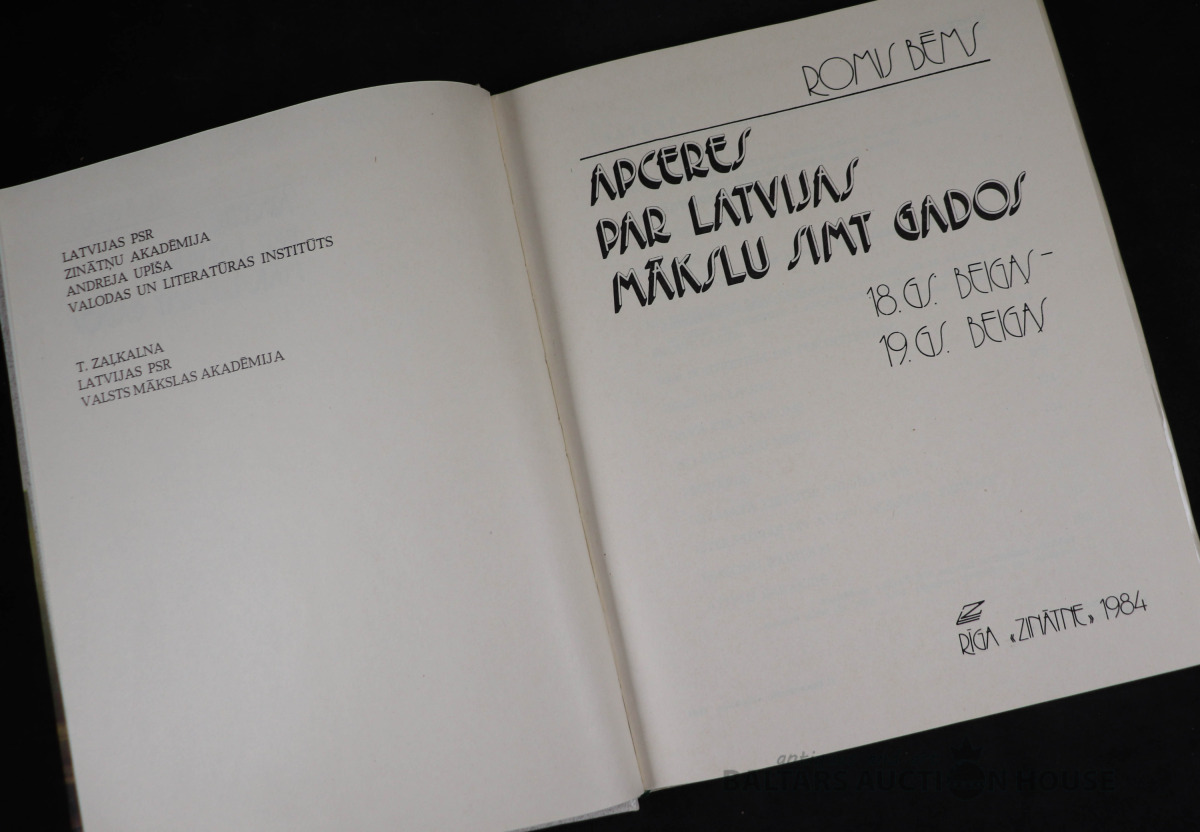 LATVIJAS PSR
ZINĀTŅU AKADĒMIJA
ANDREJA UPĪŠA
VALODAS UN LITERATŪRAS INSTITŪTS
T. ZAĻKALNA
LATVIJAS PSR
VALSTS MĀKSLAS AKADĒMIJA
ROMIS BĒMS
APCERES
PAR LATVIJAS
MĀKSLU SIMT GADOS
18. GS. BEIGAS –
19. GS. BEIGAS
Z
RĪGA «ZINĀTNE», 1984
BALTARS AUCTION HOUSE